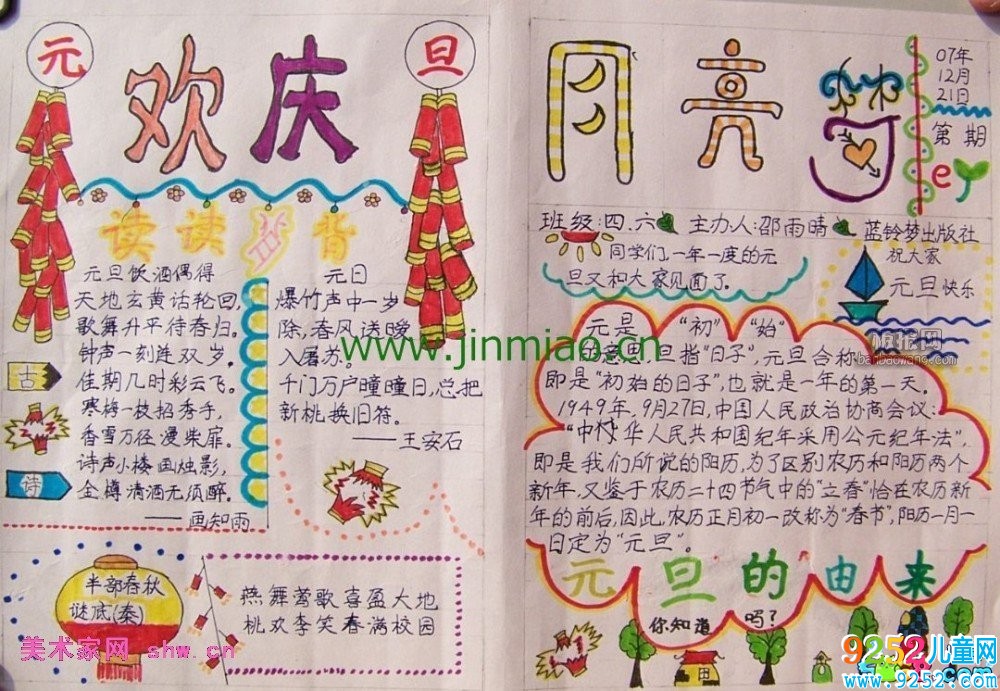 元
欢庆
旦
读读背背
元旦饮酒偶得
天地玄黄话轮回,
歌舞升平待春归。
钟声一刻连双岁,
佳期几时彩云飞。
寒梅一枝招秀手,
香雪万径漫柴扉。
诗声小楼画烛影,
金樽清酒无须醉。
——画知雨
古
诗
元日
爆竹声中一岁
除,春风送暖
入屠苏。
千门万户曈曈日,总把
新桃换旧符。
——王安石
半部春秋
谜底(秦)
燕舞莺歌喜盈大地
桃欢李笑春满校园
美术家网 shw.cn
www.jinmiao.cn
月亮
07年
12月
21日
第 期
班级:四.六 主办人:邵雨晴 蓝铃梦出版社
同学们,一年一度的元
旦又和大家见面了。
祝大家
元旦快乐
元是 “初” “始”
的意思,旦指“日子”,元旦合称
即是“初始的日子”,也就是一年的第一天。
1949年,9月27日,中国人民政治协商会议:
“中华人民共和国纪年采用公元纪年法”,
即是我们所说的阳历,为了区别农历和阳历两个
新年,又鉴于农历二十四节气中的“立春”恰在农历新
年的前后,因此,农历正月初一改称为“春节”,阳历一月一
日定为“元旦”。
元旦的由来
你知道 吗?
banbaowang.com
9252儿童网
www.9252.com